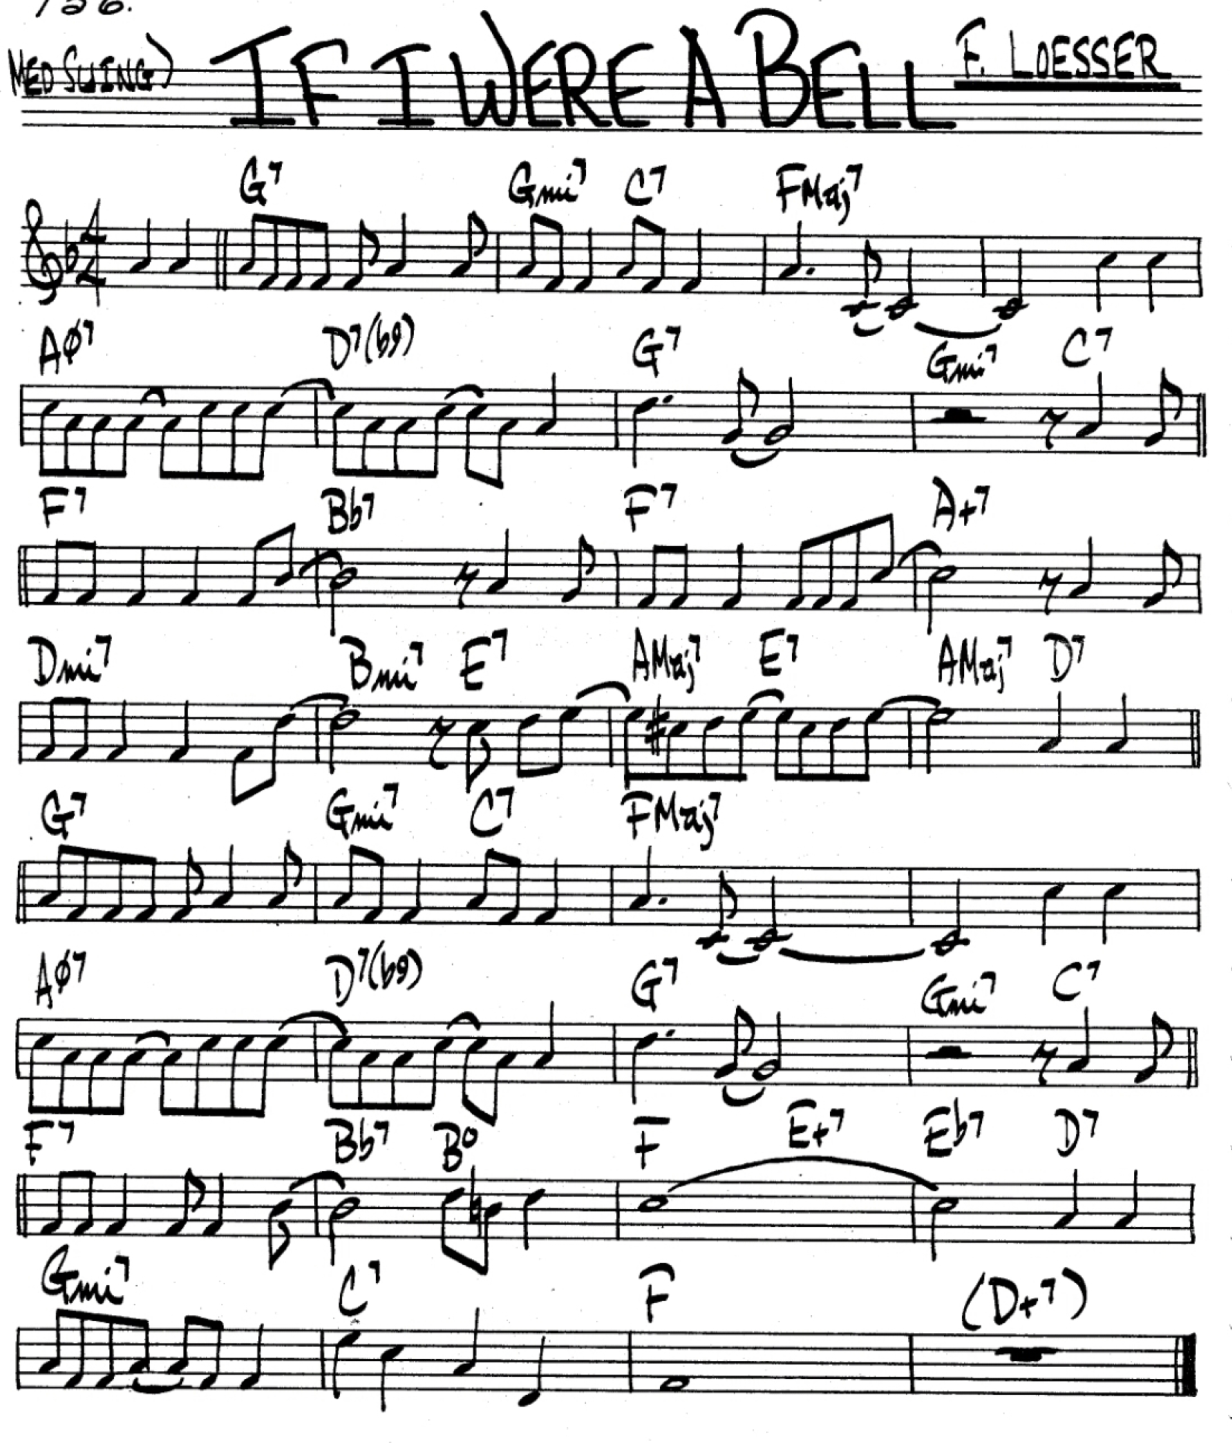 156.
MED SWING) IF I WERE A BELL F. LOESSER
G7 Gmi7 C7 FMaj7
4
4
Aø7 D7(b9) G7 Gmi7 C7
F7 Bb7 F7 A+7
Dmi7 Bmi7 E7 AMaj7 E7 AMaj7 D7
G7 Gmi7 C7 FMaj7
Aø7 D7(b9) G7 Gmi7 C7
F7 Bb7 B° F E+7 Eb7 D7
Gmi7 C7 F (D+7)